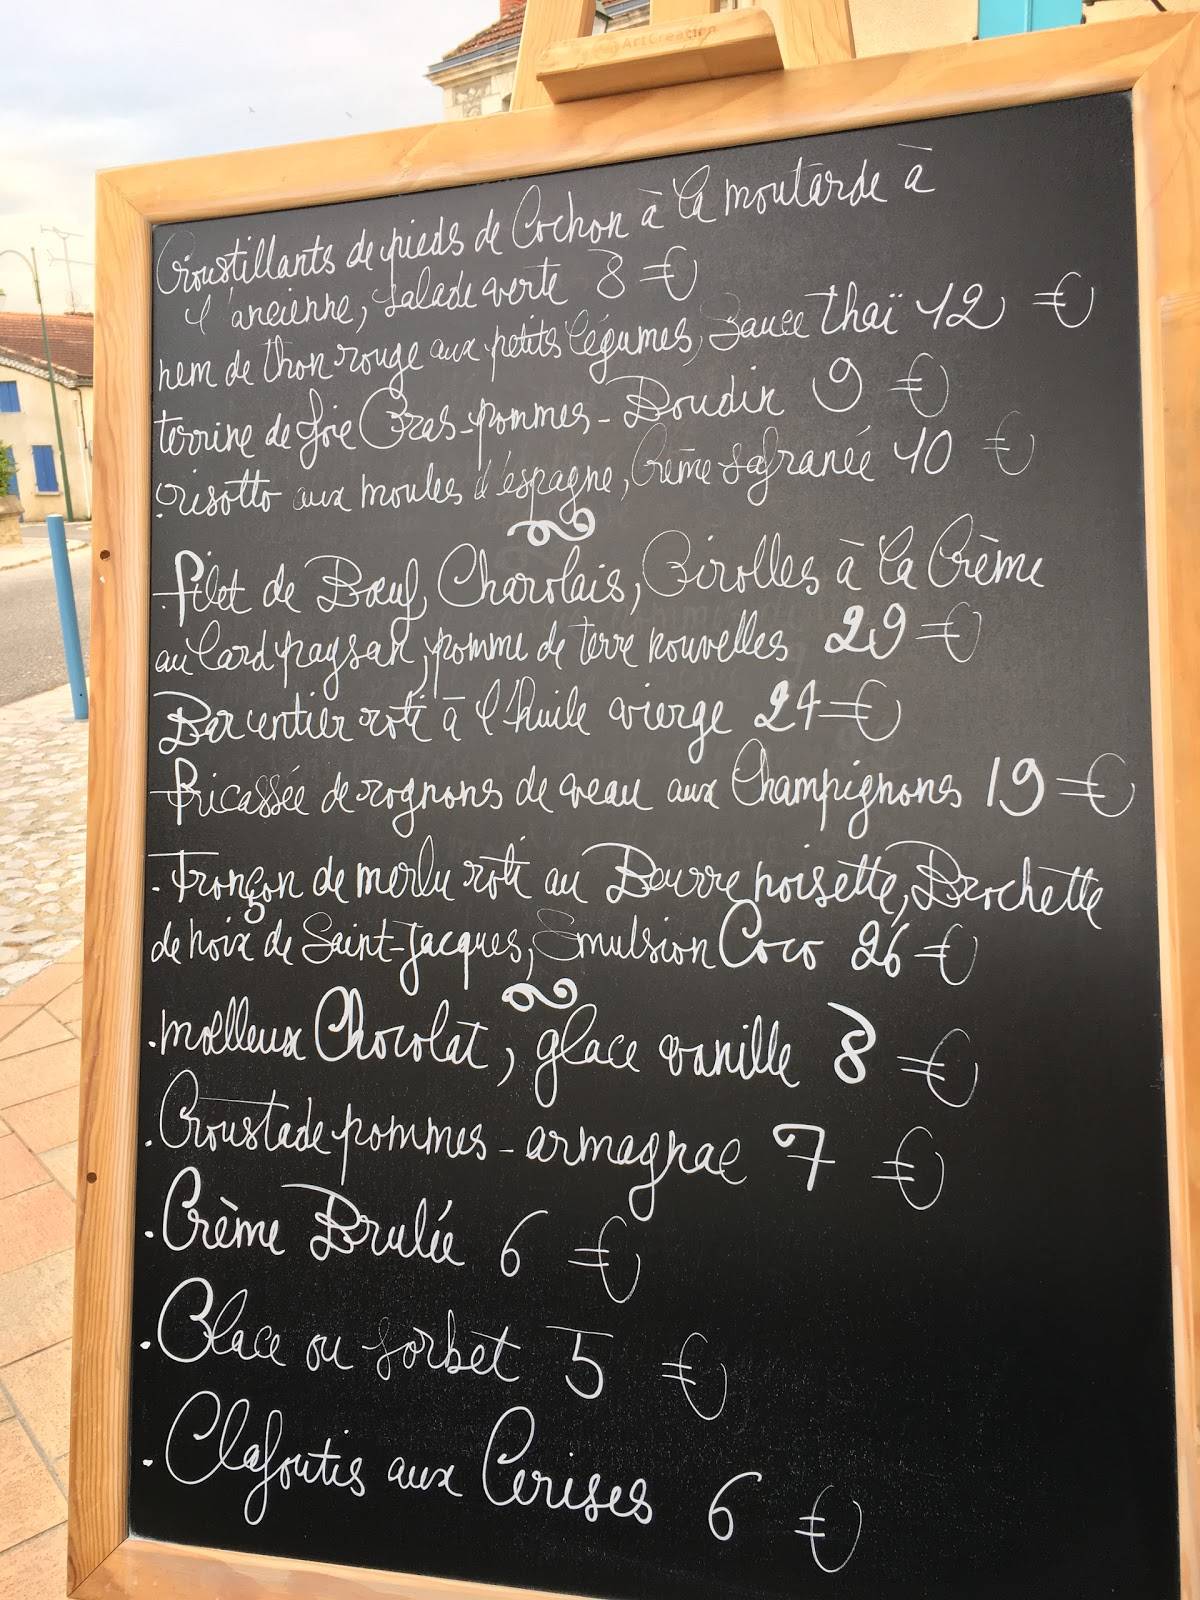 ArtCreation
Croustillants de pieds de Cochon à la moutarde à
l'ancienne, salade verte 8 €
nem de thon rouge aux petits légumes, sauce thaï 12 €
terrine de foie Gras-pommes-Boudin 9 €
risotto aux moules d'espagne, Crème safranée 10 €
filet de Bœuf, Charolais, Girolles à la Crème
au lard paysan, pomme de terre nouvelles 29 €
Bar entier roti à l'huile vierge 24 €
fricassée de rognons de veau aux Champignons 19 €
. Tronçon de merlu roti au Beurre noisette, Brochette
de noix de Saint-Jacques, Emulsion Coco 26 €
. mœlleux Chocolat, glace vanille 8 €
. Croustade pommes-armagnac 7 €
. Crème Brulée 6 €
. Glace ou sorbet 5 €
. Clafoutis aux Cerises 6 €